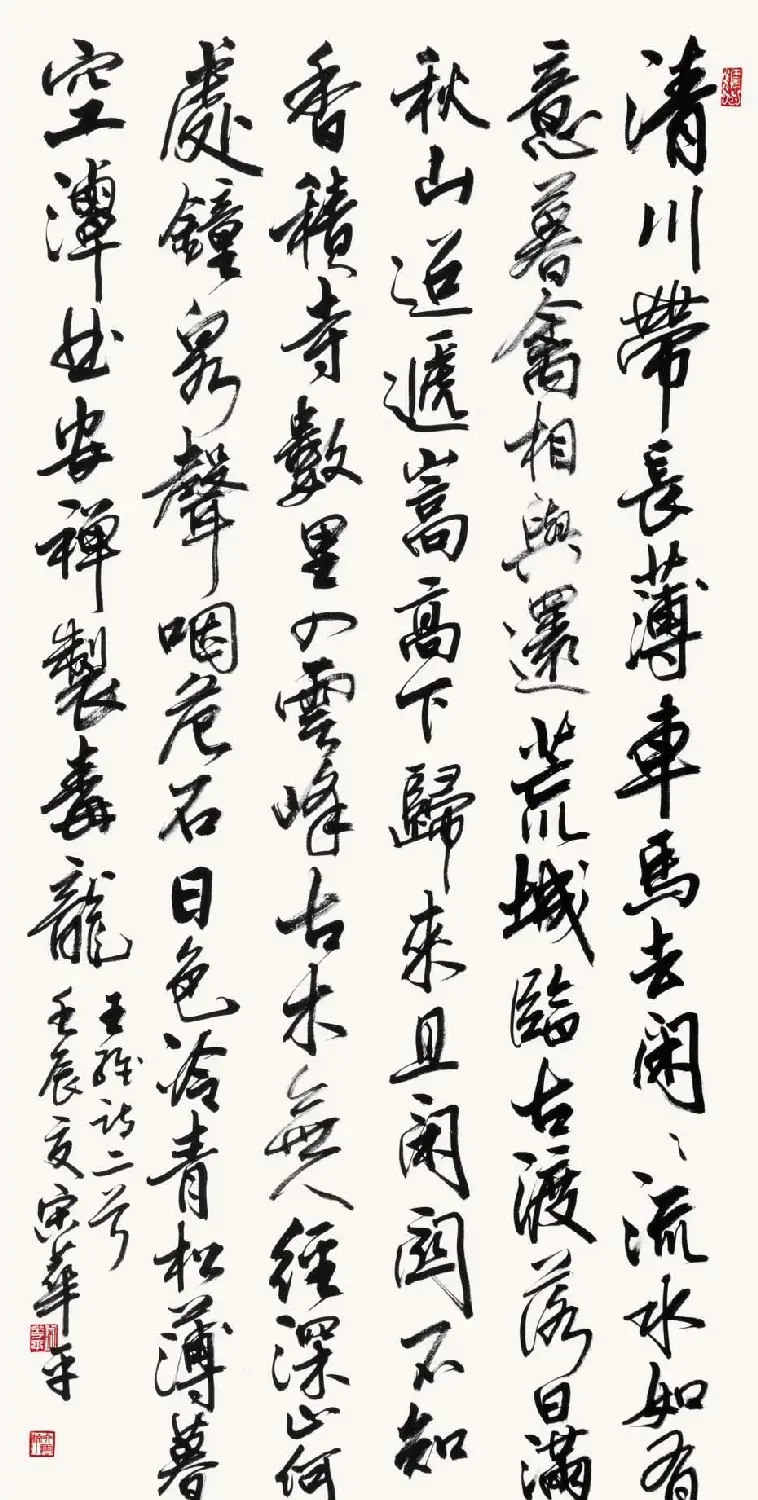 清川帶長薄車馬去閑〻流水如有
意暮禽相與還荒城臨古渡落日滿
秋山迢遞嵩高下歸來且閉關不知
香積寺數里入雲峰古木無人經深山何
處鐘泉聲咽危石日色冷青松薄暮
空潭曲安禪製毒龍
王維詩二首
壬辰夏宋華平